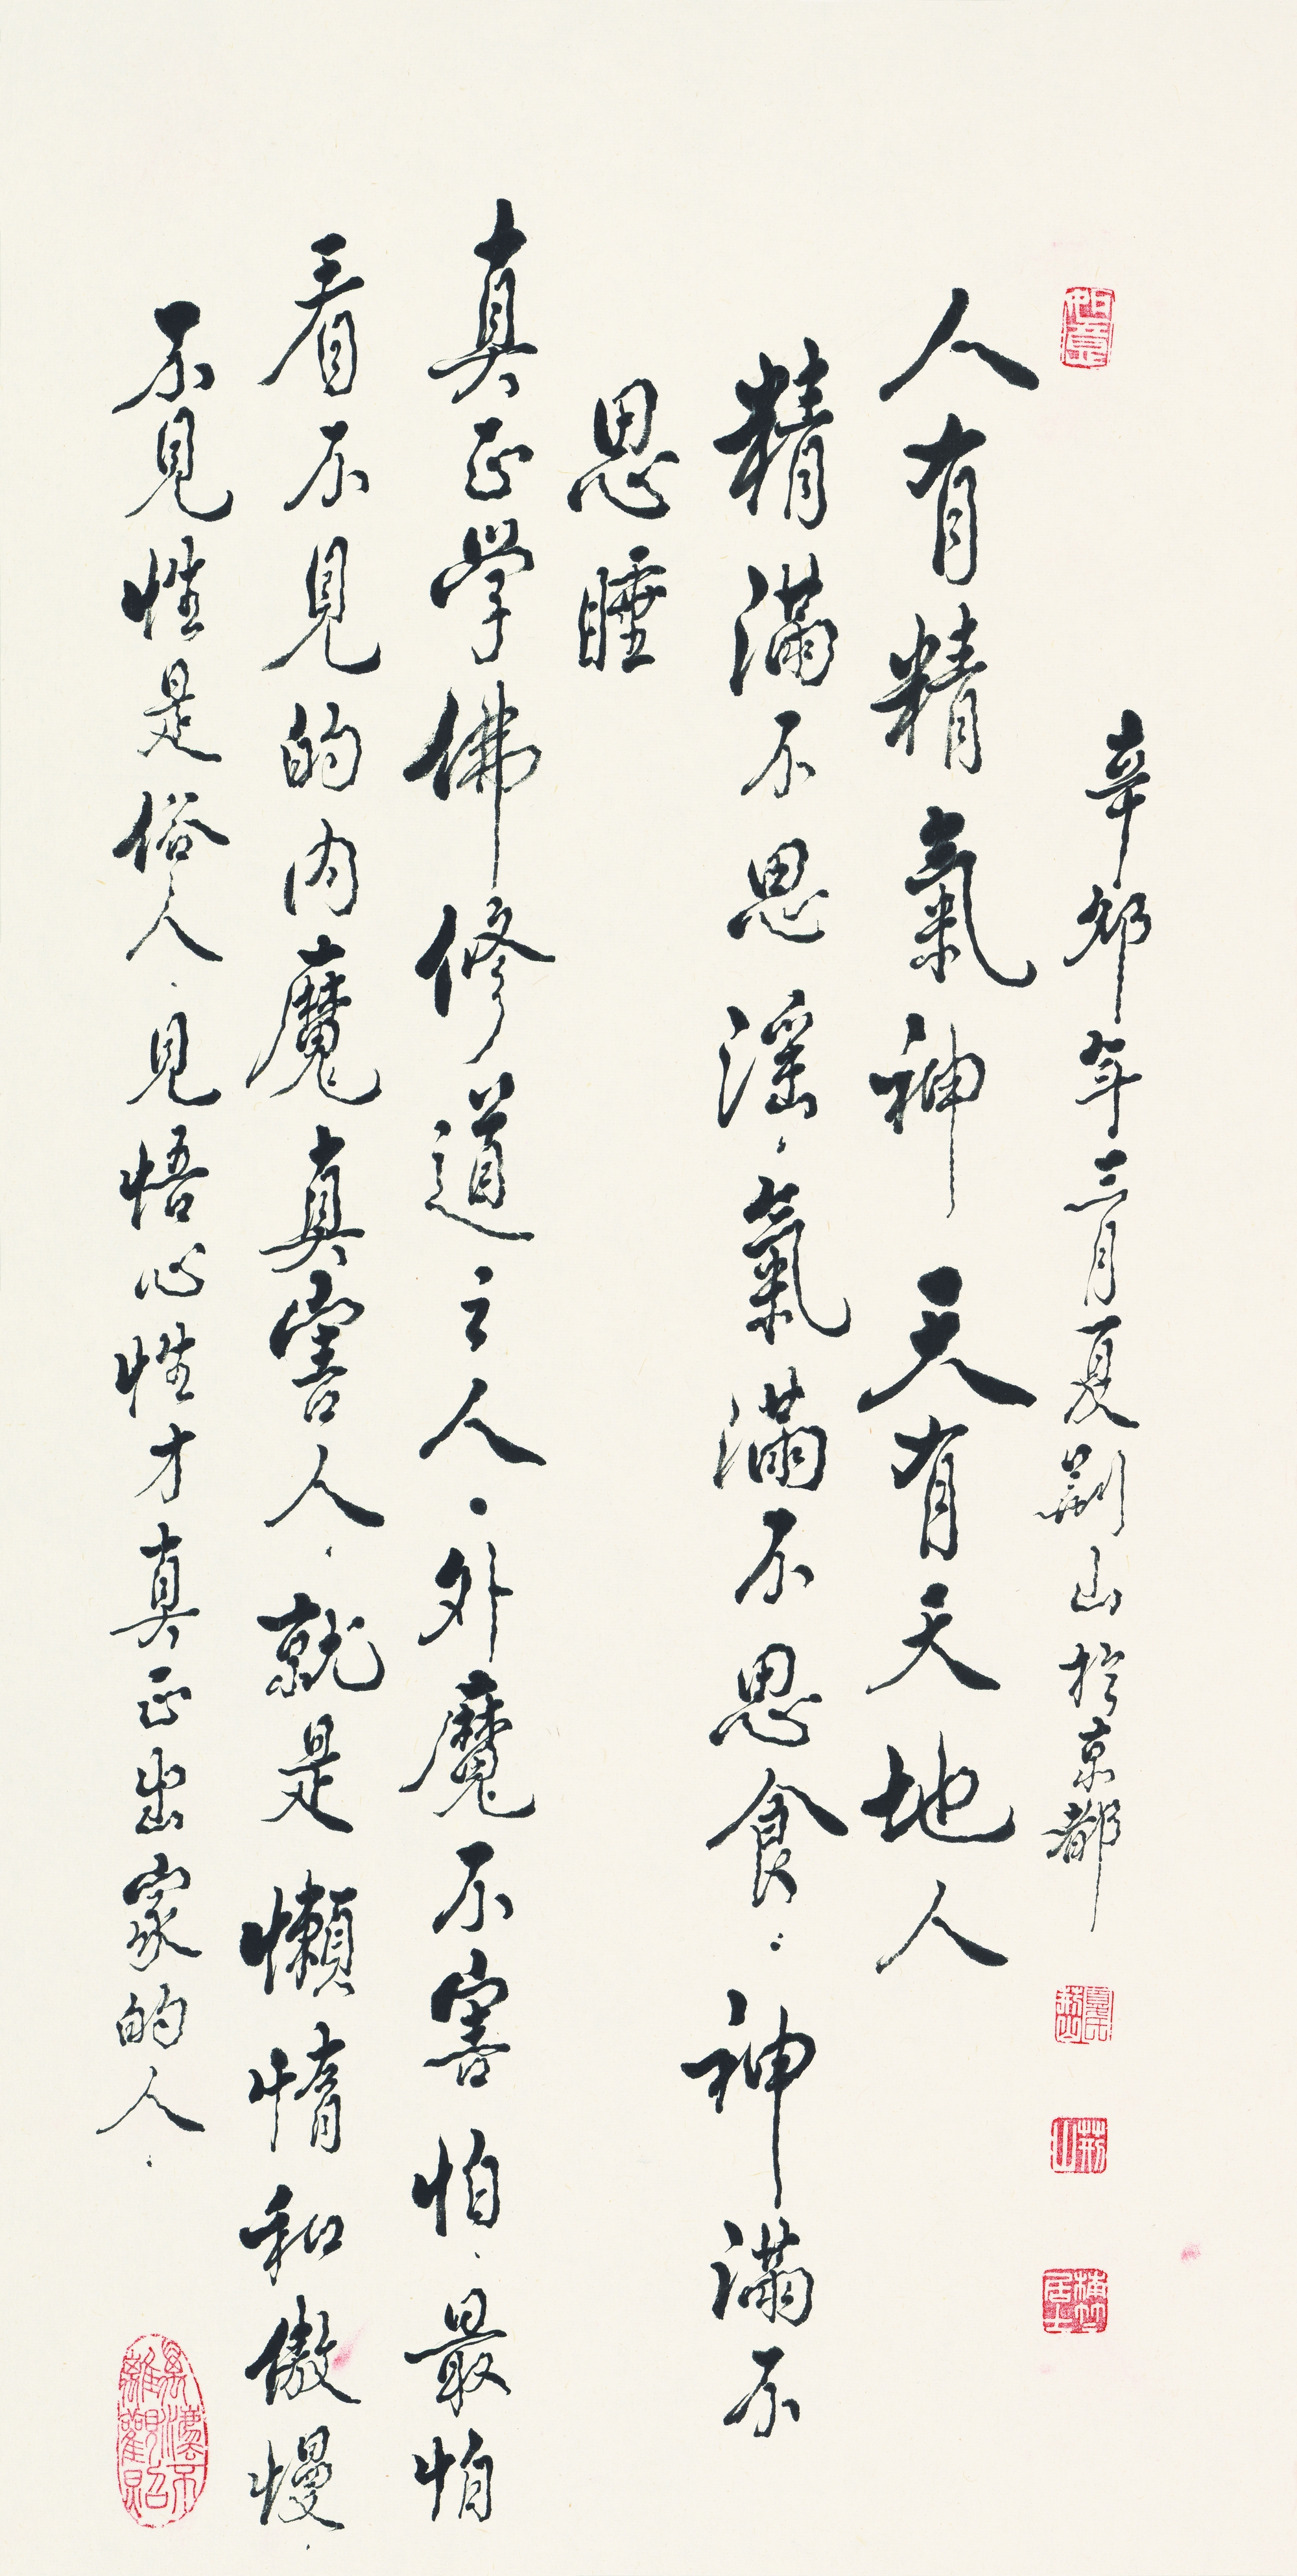 如意
辛卯年三月夏荊山於京都
荊山
人有精氣神 天有天地人
精滿不思淫．氣滿不思食．神滿不
思睡
真正學佛修道之人．外魔不害怕．最怕
看不見的內魔真害人．就是懶惰和傲慢．
不見性是俗人．見悟心性才真正出家的人．